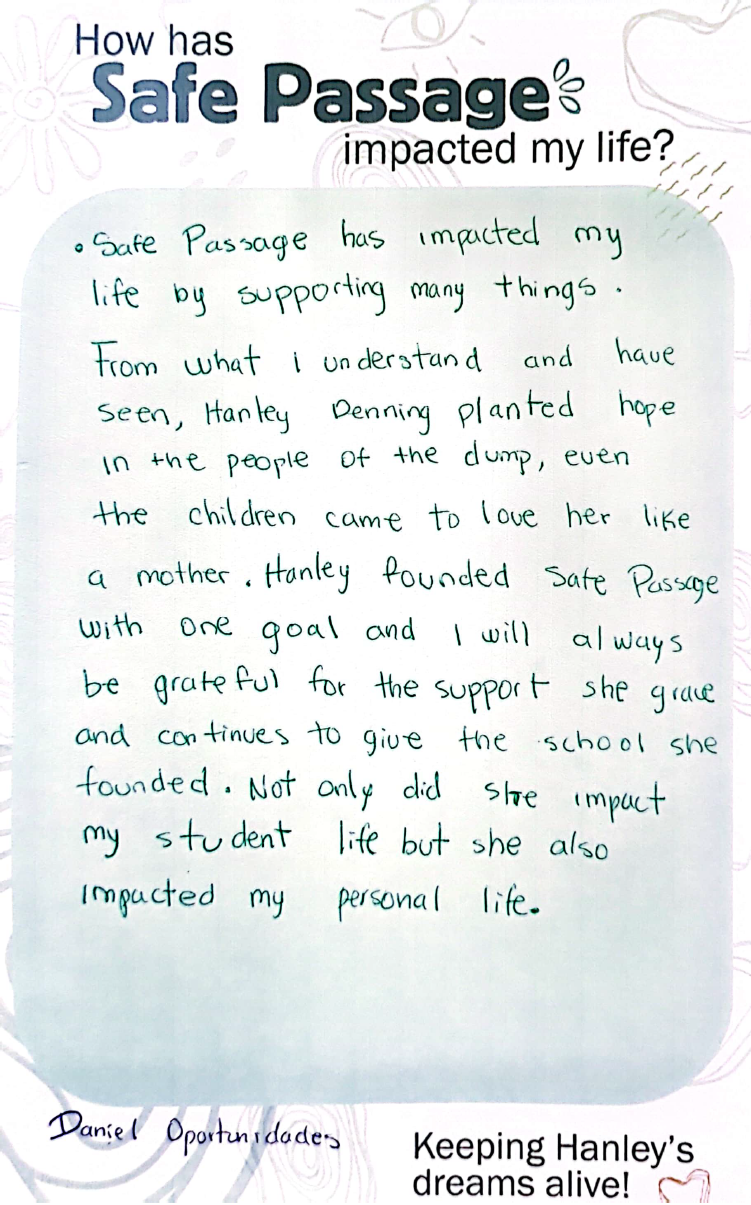 How has
Safe Passage
impacted my life?
• Safe Passage has impacted my
life by supporting many things.
From what i understand and have
seen, Hanley Denning planted hope
in the people of the dump, even
the children came to love her like
a mother. Hanley founded Safe Passage
with one goal and I will always
be grateful for the support she grave
and continues to give the school she
founded. Not only did she impact
my student life but she also
impacted my personal life.
Daniel Oportunidades
Keeping Hanley's
dreams alive!